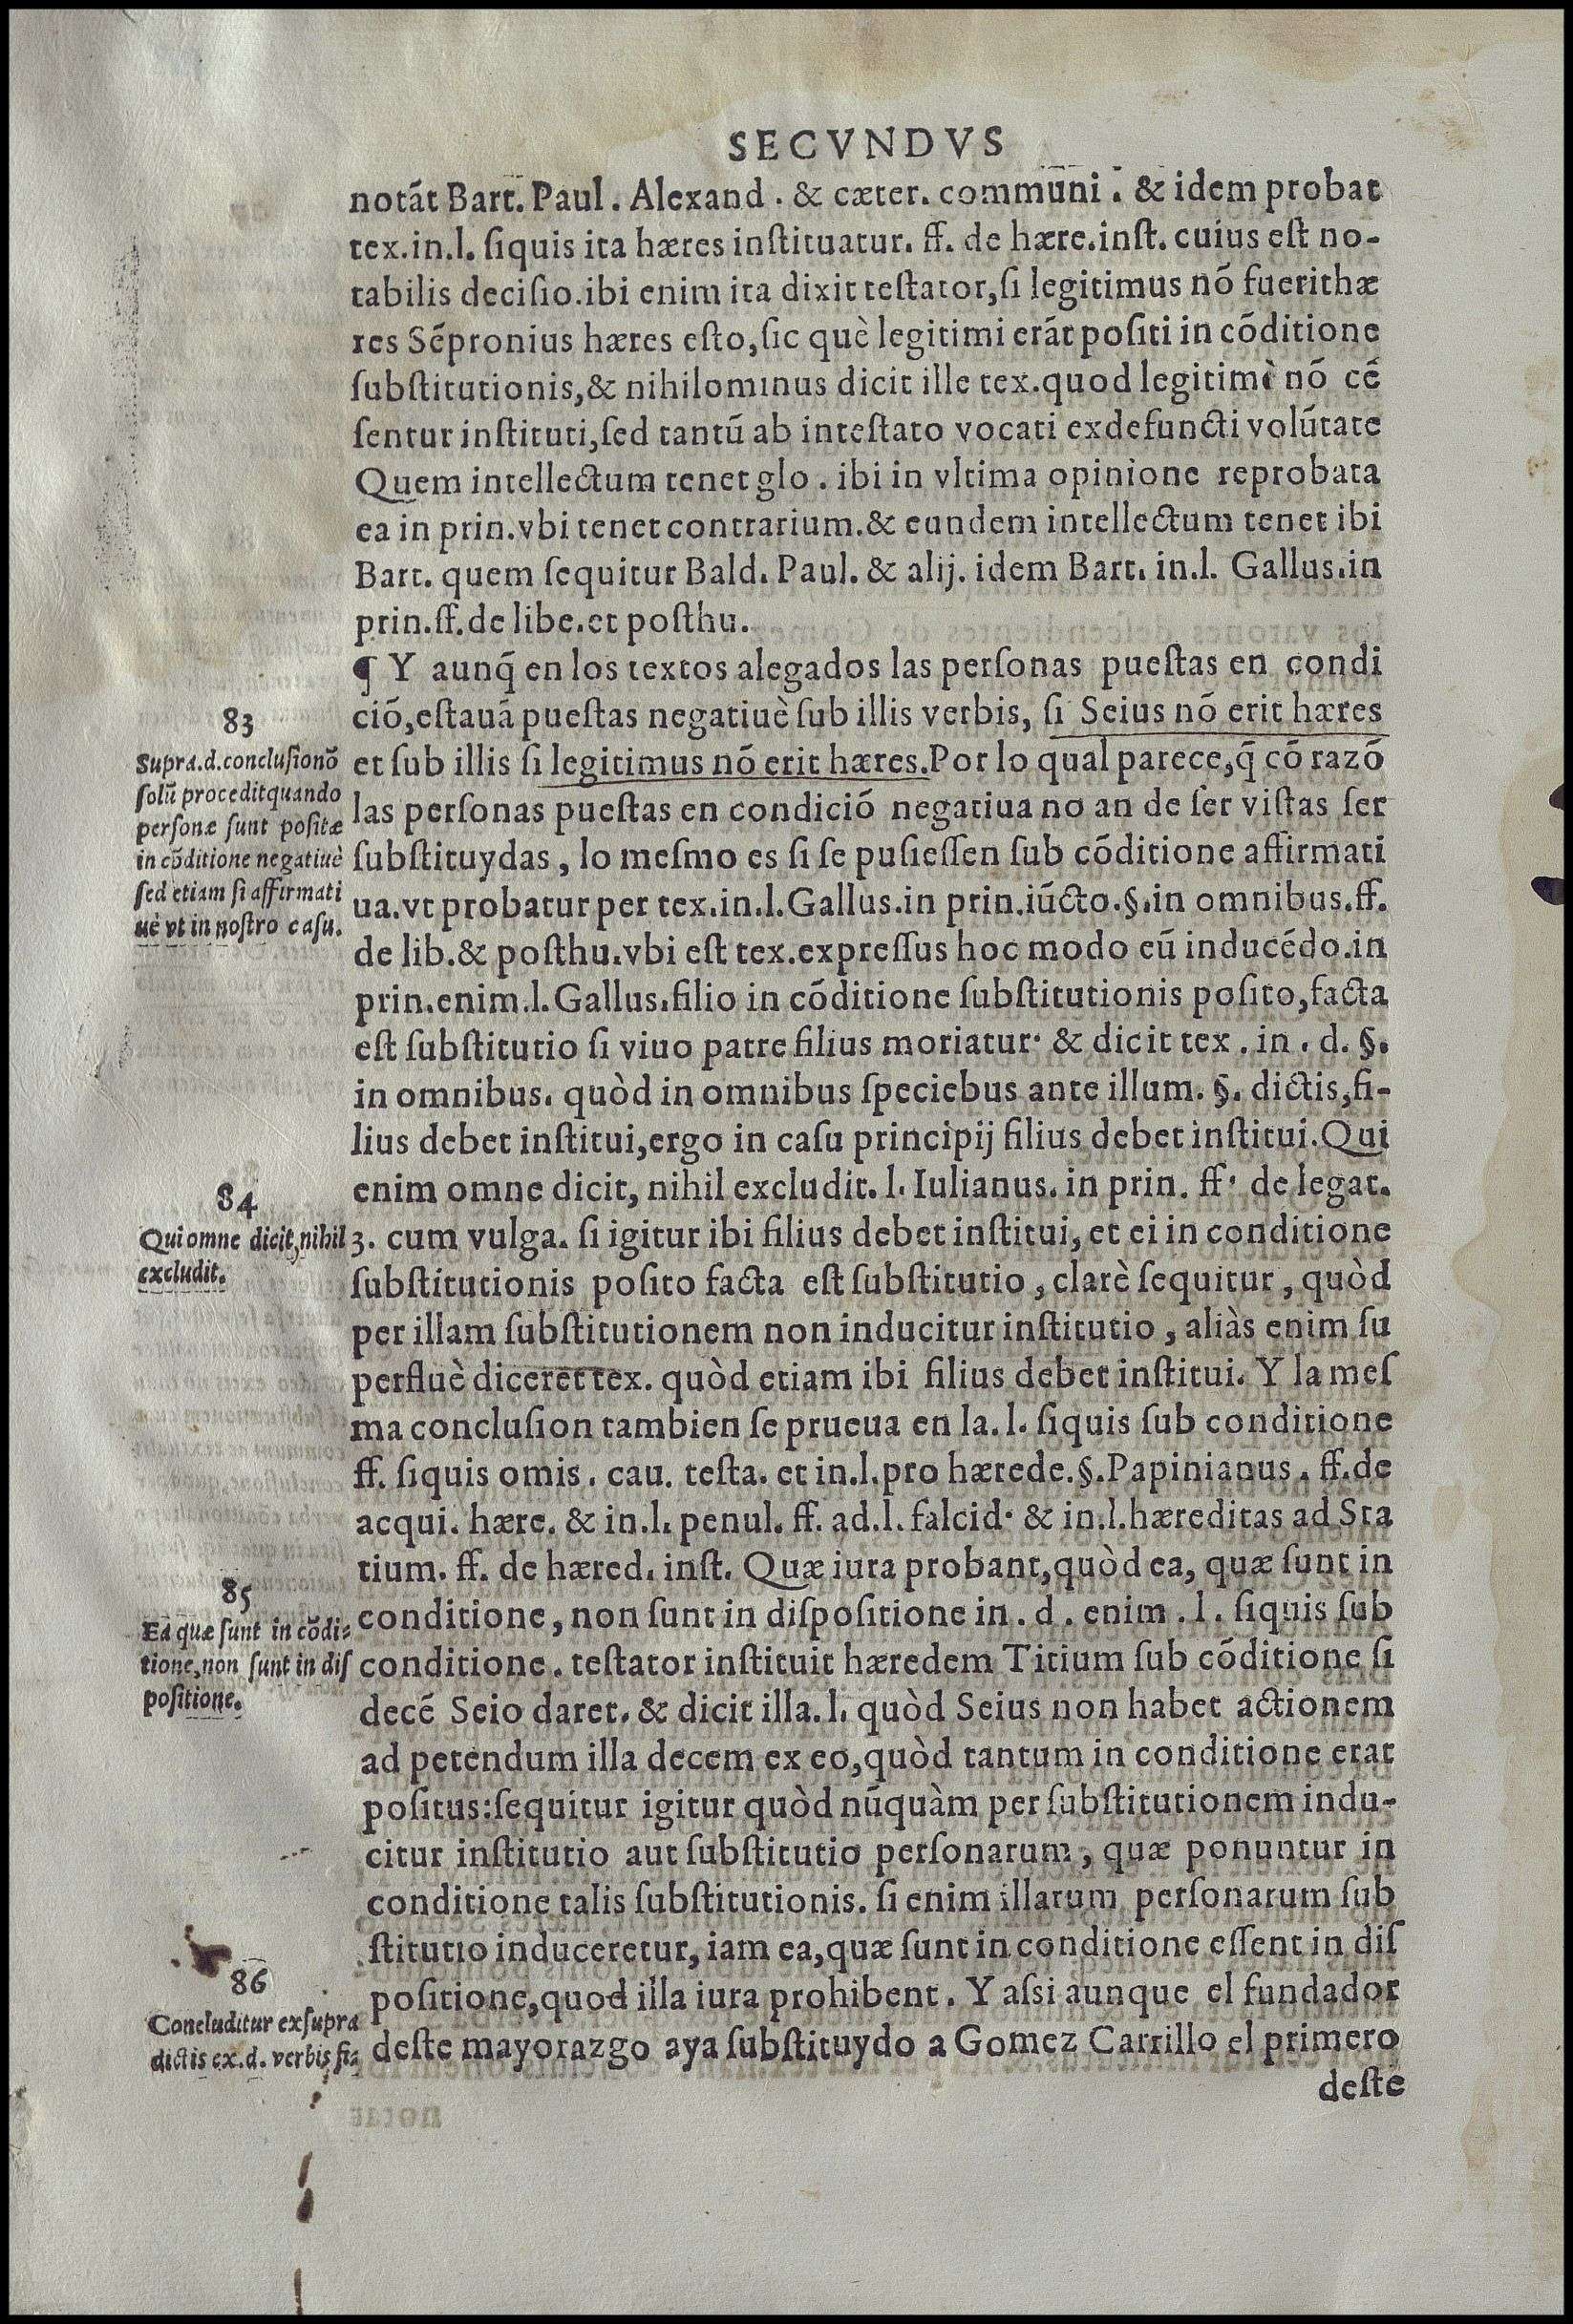 SECVNDVS
notãt Bart. Paul. Alexand. & cæter. communi. & idem probat
tex.in.l. siquis ita hæres instituatur. ff. de hære.inst. cuius est no-
tabilis decisio.ibi enim ita dixit testator,si legitimus nõ fuerithæ
res Sẽpronius hæres esto,sic què legitimi erãt positi in cõditione
substitutionis,& nihilominus dicit ille tex.quod legitimè nõ cẽ
sentur instituti,sed tantũ ab intestato vocati exdefuncti volũtate
Quem intellectum tenet glo. ibi in vltima opinione reprobata
ea in prin.vbi tenet contrarium.& eundem intellectum tenet ibi
Bart. quem sequitur Bald. Paul. & alij. idem Bart. in.l. Gallus.in
prin.ff.de libe.et posthu.
¶ Y aunq̃ en los textos alegados las personas puestas en condi
ciõ,estauã puestas negatiuè sub illis verbis, si Seius nõ erit hæres
et sub illis si legitimus nõ erit hæres.Por lo qual parece,q̃ cõ razõ
las personas puestas en condiciõ negatiua no an de ser vistas ser
substituydas, lo mesmo es si se pusiessen sub cõditione affirmati
ua.vt probatur per tex.in.l.Gallus.in prin.iũcto.§.in omnibus.ff.
de lib.& posthu.vbi est tex.expressus hoc modo eũ inducẽdo.in
prin.enim.l.Gallus.filio in cõditione substitutionis posito,facta
est substitutio si viuo patre filius moriatur. & dicit tex. in. d. §.
in omnibus. quòd in omnibus speciebus ante illum. §. dictis,fi-
lius debet institui,ergo in casu principij filius debet institui.Qui
enim omne dicit, nihil excludit. l. Iulianus. in prin. ff. de legat.
3. cum vulga. si igitur ibi filius debet institui, et ei in conditione
substitutionis posito facta est substitutio, clarè sequitur, quòd
per illam substitutionem non inducitur institutio, aliàs enim su
perfluè diceret tex. quòd etiam ibi filius debet institui. Y la mes
ma conclusion tambien se prueua en la. l. siquis sub conditione
ff. siquis omis. cau. testa. et in.l.pro hærede.§.Papinianus. ff.de
acqui. hære. & in.l. penul. ff. ad.l. falcid. & in.l.hæreditas ad Sta
tium. ff. de hæred. inst. Quæ iura probant,quòd ea, quæ sunt in
conditione, non sunt in dispositione in. d. enim. l. siquis sub
conditione. testator instituit hæredem Titium sub cõditione si
decẽ Seio daret. & dicit illa. l. quòd Seius non habet actionem
ad petendum illa decem ex eo,quòd tantum in conditione erat
positus:sequitur igitur quòd nũquàm per substitutionem indu-
citur institutio aut substitutio personarum, quæ ponuntur in
conditione talis substitutionis. si enim illarum personarum sub
stitutio induceretur, iam ea,quæ sunt in conditione essent in dis
positione,quod illa iura prohibent. Y assi aunque el fundador
deste mayorazgo aya substituydo a Gomez Carrillo el primero
deste
83
Supra.d.conclusionõ
solũ proceditquando
personæ sunt positæ
in cõditione negatiuè
sed etiam si affirmati
uè vt in nostro casu.
84
Qui omne dicit,nihil
excludit.
85
Ea quæ sunt in cõdi-
tione,non sunt in dis
positione.
86
Concluditur exsupra
dictis ex.d. verbis fia